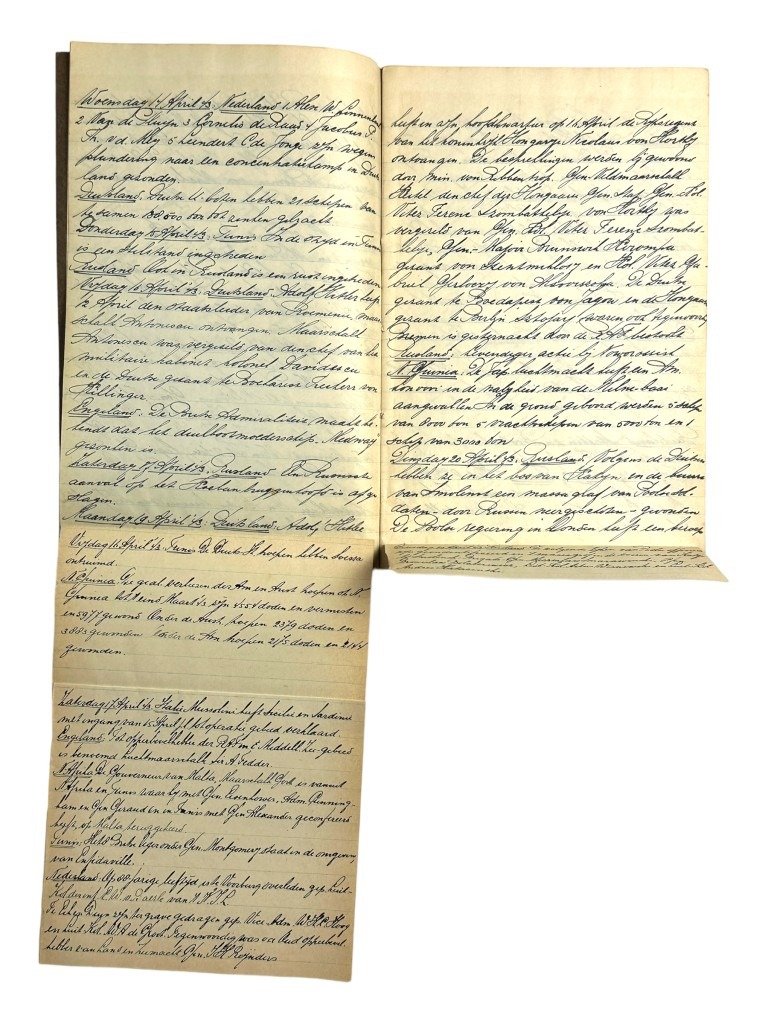 Woensdag 14 April '43. Nederland 1 Alen W.
2 Van de Sluijn 3 Cornelis de Raad 4 Jacobus P.
Fn. v.d. Mey 5 Leendert C de Jonge zijn wegens
plundering naar een concentratiekamp in Duits
land gezonden.
Duitsland. Duitse U-boten hebben 21 schepen van
te samen 138.000 ton tot zinken gebracht
Donderdag 15 April '43. Tunis In de strijd in Tunis
is een stilstand ingetreden
Rusland Ook in Rusland is een rust ingetreden
Vrijdag 16 April '43. Duitsland. Adolf Hitler heeft
12 April den staatsleider van Roemenie, maar
schalk Antonescu ontvangen. Maarschalk
Antonescu was vergezeld van den chef van het
militaire kabinet kolonel Davidescu
en de Duitse gezant te Boekarest Freiherr von
Killinger
Engeland. De Britse Admiraliteit maakt be
kend dat het duikbootmoederschip Medway
gezonken is.
Zaterdag 17 April '43. Rusland. Een Russische
aanval op het Koeban bruggenhoofd is afge
slagen.
Maandag 19 April '43. Duitsland. Adolf Hitler
Vrijdag 16 April '43 Tunis De Duits-It. troepen hebben Soessa
ontruimd.
N. Guinea: De geal. verliezen der Am en Aust. troepen op N.
Guinea tot eind Maart '43 zijn 4554 doden en vermisten
en 5977 gewond. Onder de Aust. troepen 2379 doden en
3883 gewonden Onder de Am troepen 2175 doden en
gewonden.
Zaterdag 17 April '43 Italie Mussolini heeft Sicilie en Sardinie
met ingang van 15 April j.l. tot operatie gebied verklaard.
Engeland: Tot opperbevelhebber der R.A.F. in 't Middell. Zee-gebied
is benoemd luchtmaarschalk Sir A Tedder.
N. Afrika De Gouverneur van Malta, Maarschalk Gort is vanuit
N. Afrika en Tunis waar hij met Gen. Eisenhower, Adm. Cunning-
ham en Gen Giraud en in Tunis met Gen Alexander geconfereerd
heeft, op Malta teruggekeerd.
Tunis: Het 8 Britse leger onder Gen. Montgomery staat in de omgeving
van Enfidaville.
Nederland Op 88 jarige leeftijd is te Voorburg overleden gep. luit-
Kol der inf.
Te Eiken Duyn zijn ter grave gedragen gep. Vice Adm. W. H. de Hoog
en luit Kol. W. A de Groot. Tegenwoordig was o.a. Oud opperbevel
hebber van land en zeemacht Gen. I.H. Reijnders
heeft in zijn hoofdkwartier op 16 April de Rijksregent
van het koninkrijk Hongarije Nicolaus von Horthy
ontvangen. De besprekingen werden bijgewoond
door min. von Ribbentrop. Gen. Veldmaarschalk
Keitel den chef der Hongaarse Gen. Staf, Gen. Kol.
Vitez Ferenc Szombathelyi. von Horthy was
vergezeld van Gen. Kol. Vitez Ferenc Szombat-
helyi, Gen.-Majoor
gezant von en Kol. Vitez Ga-
briel Gerloczy von Alsoviszoka. De Duitse
gezant te Boedapest von Jagow en de Hongaarse
gezant te Berlijn Sztojay waren ook tegenwoordig
Bremen is gisternacht door de R.A.F. bestookt
Rusland: Levendiger actie bij Noworossisk
N. Guinea. De Jap. luchtmacht heeft een Am.
konvooi in de nabijheid van de Milne-baai
aangevallen In de grond geboord werden 5 schepen
van 8000 ton 5 vrachtschepen van 5000 ton en 1
schip van 3000 ton
Dinsdag 20 April '43. Rusland. Volgens de Duitsers
hebben ze in het bos van Katyn en de buurt
van Smolensk een massagraf van Poolse sol-
daten - door Russen neergeschoten - gevonden
De Poolse regering in Londen heeft een beroep